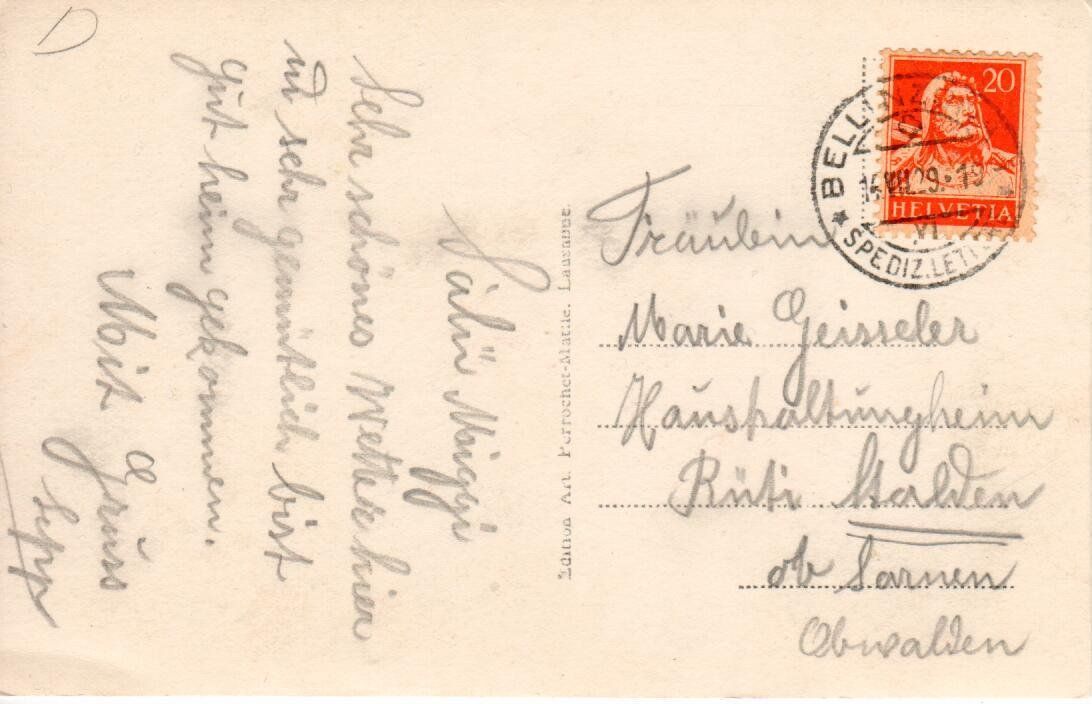 D
Salü Miggi
Sehr schönes Wetter hier
und sehr gemütlich bist
gut heim gekommen.
Mit Gruss
Sepp
Edition Art. Perrochet-Matile. Lausanne.
20
HELVETIA
BELLINZ
VII.29.
VI
SPEDIZ.LETT
Fräulein
Marie Geisseler
Haushaltungheim
Rüti Stalden
ob Sarnen
Obwalden